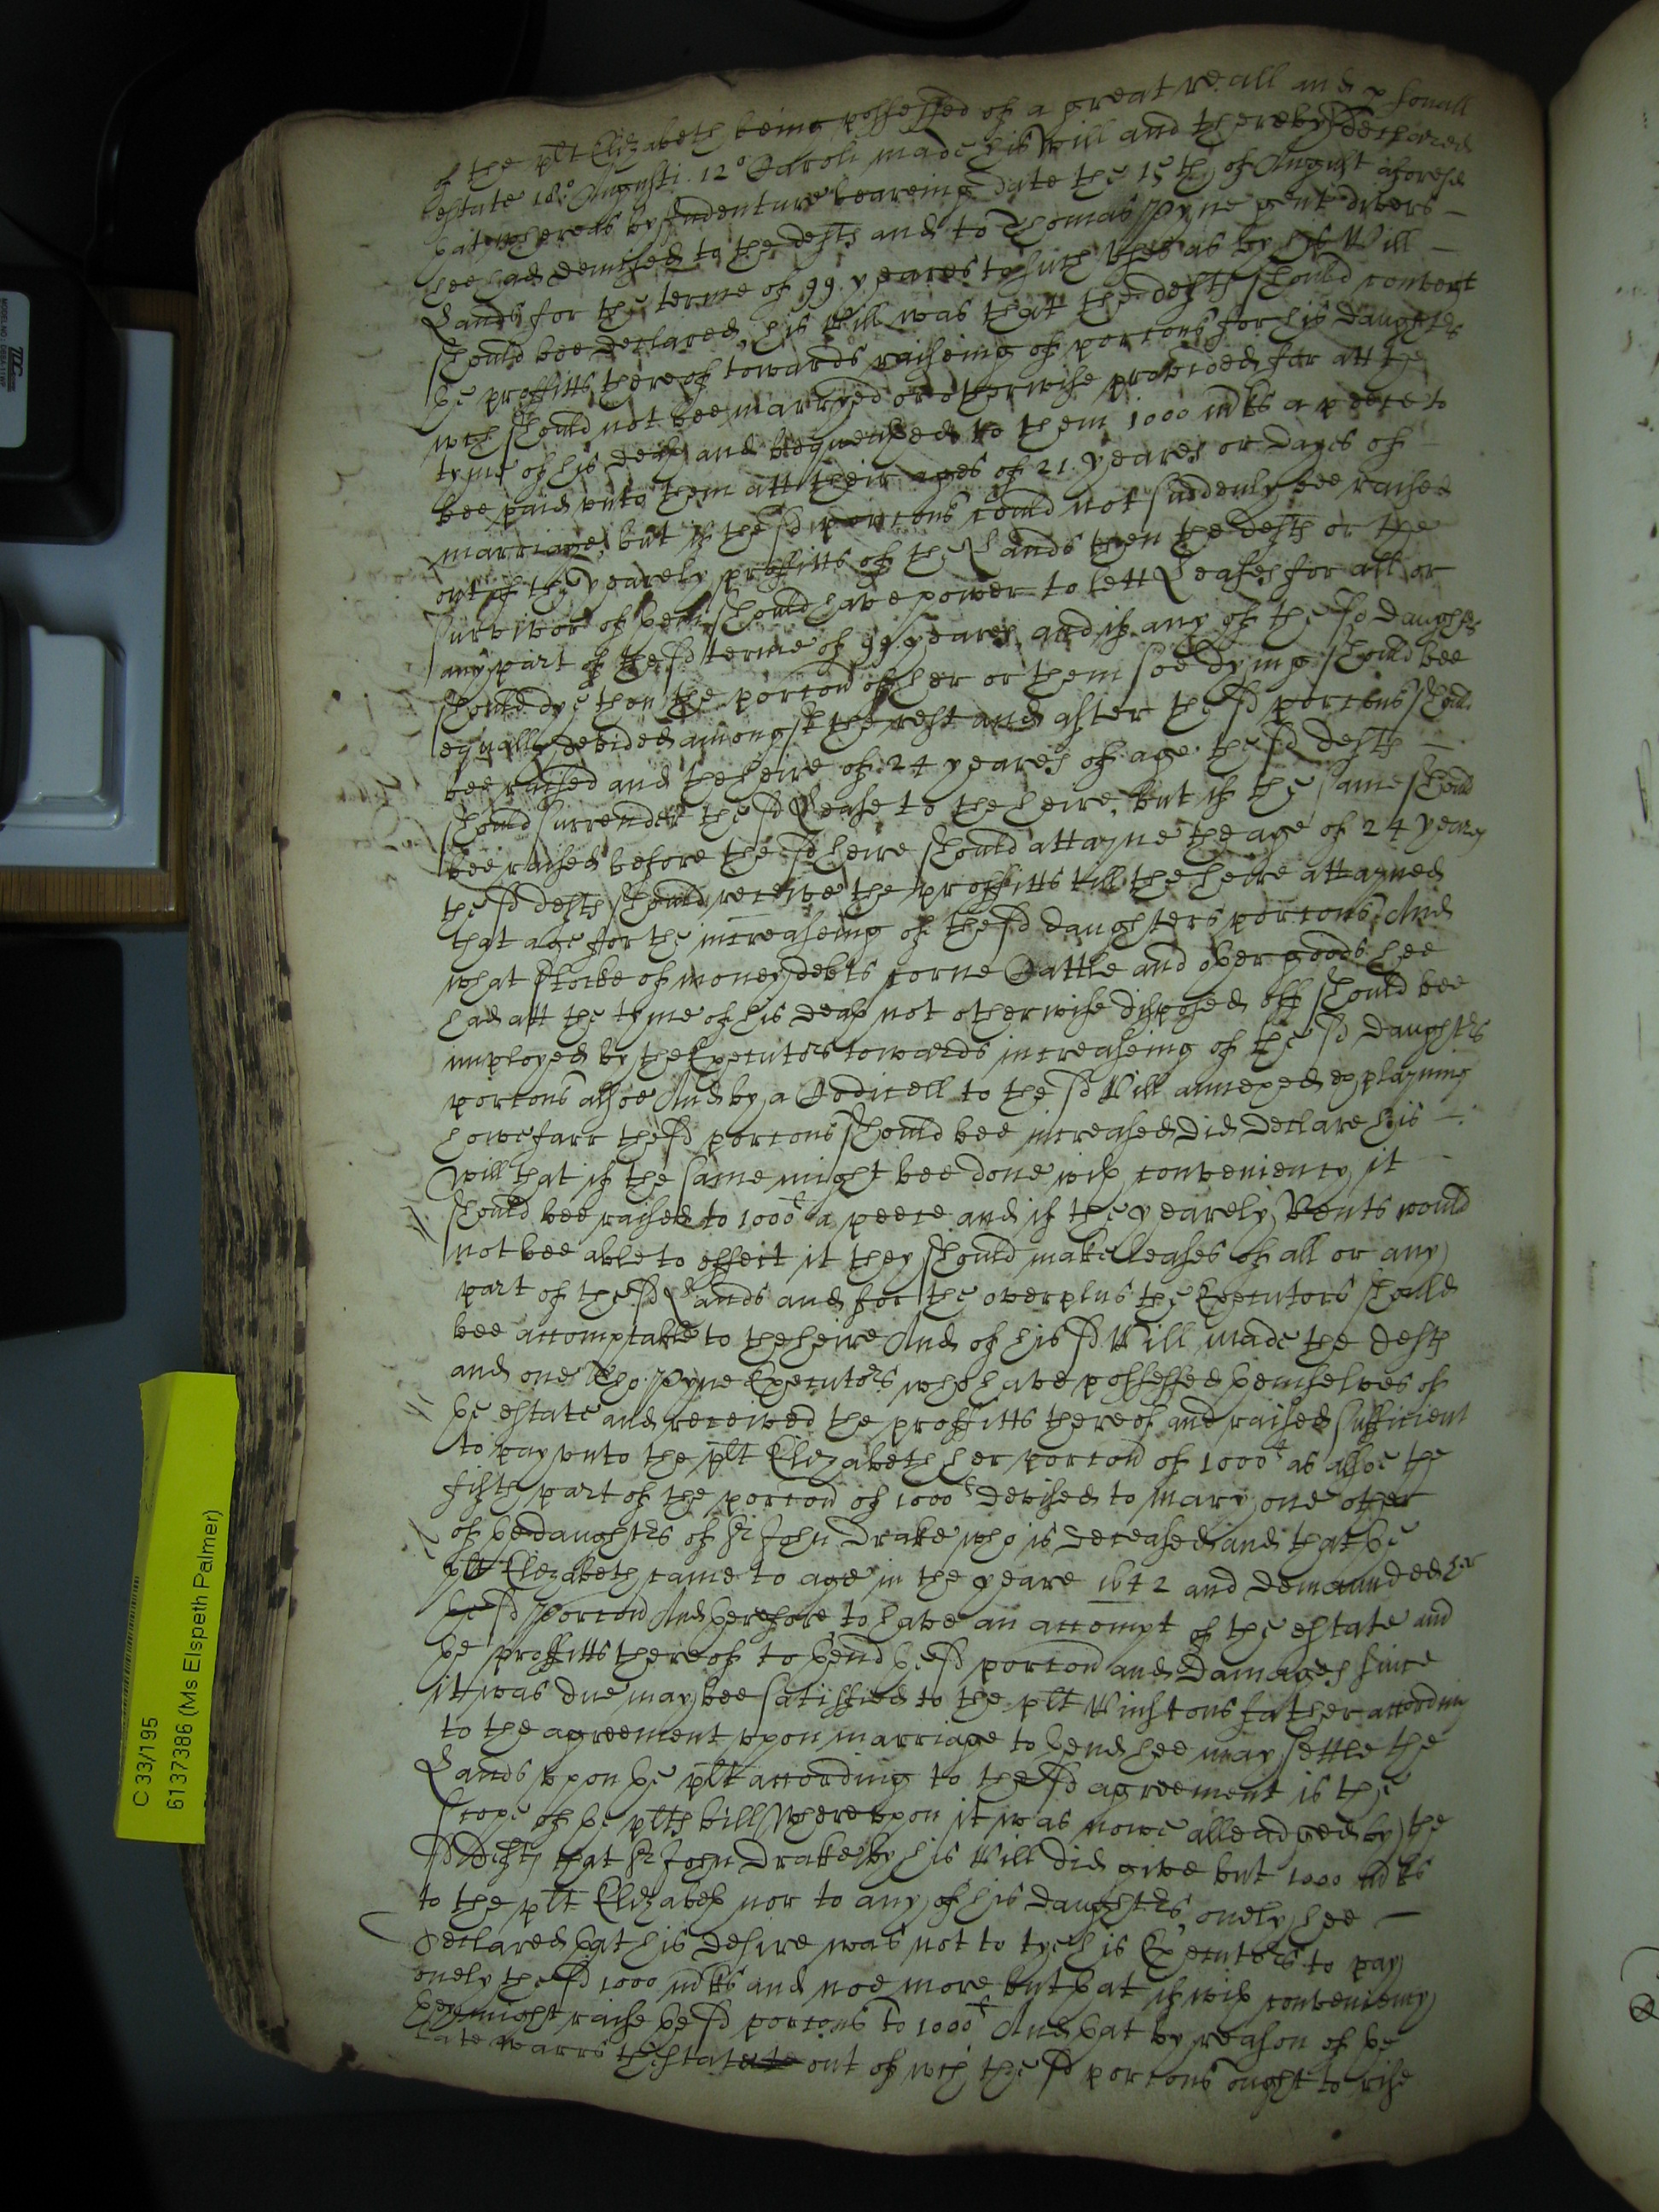 of the plt Elizabeth being possessed of a great reall and psonall
estate 18o Augusti 12o Caroli made his Will and thereby declared
yat whereas by Indenture beareing date the 15th of August aforesd
hee had demised to the defts and to Thomas Pyne gent divers
Lands for the terme of 99 yeares to such uses as by his Will
should bee declared, his Will was that the defts should convert
ye proffitts thereof towards raiseing of porcons for his daughters
wch should not bee marryed or otherwise provided for att the
tyme of his death and bequeathed to them 1000 mrks a peece to
bee paid unto them att their ages of 21 yeares or dayes of
marriage, but if the sd porcons could not suddenly bee raised
out of the yearely proffitts of the Lands then the defts or the
survivor of them should have power to lett Leases for all or
any part of the sd terme of 99 yeares, and if any of the sd daughters
should dye then the porcon of her or them soe dying should bee
equally devided amongst the rest and after the sd porcons should
bee raised and the heire of 24 yeares of age the sd defts
should surrender the sd Lease to the heire, but if the same should
bee raised before the sd heire should attayne the age of 24 yeares
the sd defts should receive the proffitts till the heire attayned
that age for the increaseing of the sd daughters porcons, And
what stocke of money debts corne Cattle and other goods hee
had att the tyme of his death not otherwise disposed off should bee
imployed by the Executors towards increaseing of the sd daughters
porcons alsoe And by a Codicell to the sd Will annexed explayning
howe farr the sd porcons should bee increased did declare his
will that if the same might bee done with conveniency it
should bee raised to 1000l a peece and if the yearely Rents would
not bee able to effect it they should make leases of all or any
part of the sd Lands and for the overplus the Executors should
bee accomptable to the heire And of his sd Will made the defts
and one Tho: Pyne Executors who have possessed themselves of
ye estate and received the proffitts thereof and raised sufficient
to pay unto the plt Elizabeth her porcon of 1000l as alsoe the
fifth part of the porcon of 1000l devised to Mary one other
of ye daughters of Sr John Drake who is deceased and that ye
plt Elizabeth came to age in the yeare 1642 and demaunded her
ye sd porcon And therefore to have an accompt of the estate and
ye proffitts thereof to thend ye sd porcon and Damages since
itt was due may bee satisfied to the plt Winstons father according
to the agreement upon marriage to thend hee may settle the
Lands upon ye plt according to the sd agreement is the
scope of ye plts bill Whereupon it was nowe alleadged by the
sd Defts that Sr John Drake by his Will did give but 1000 mrks
to the plt Elizabeth nor to any of his daughters, onely hee
declared that his desire was not to tye his Executors to pay
onely the sd 1000 mrks and noe more but that if with conveniency
they might raise ye sd porcons to 1000l And that by reason of ye
late warrs the estate out of wch the sd porcons ought to rise
C 33/195
6137386 (Ms Elspeth Palmer)